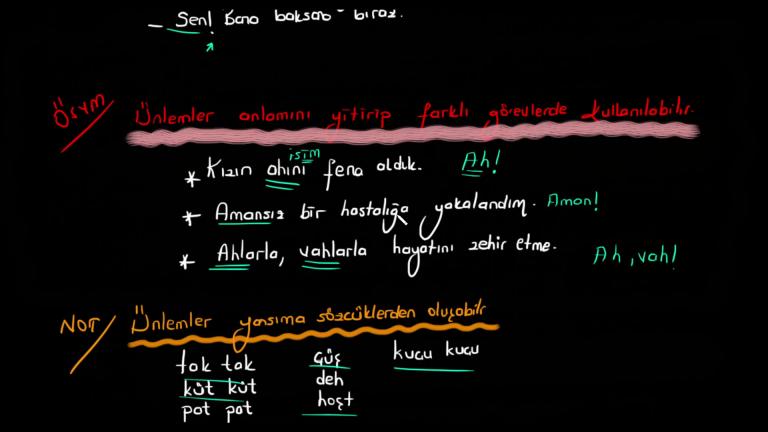 – Sen! Bana baksana biraz.
ÖSYM Ünlemler anlamını yitirip farklı görevlerde kullanılabilir.
isim
* Kızın ahını fena aldık. Ah!
* Amansız bir hastalığa yakalandım. Aman!
* Ahlarla, vahlarla hayatını zehir etme. Ah, vah!
NOT Ünlemler yansıma sözcüklerden oluşabilir
tak tak güç kucu kucu
küt küt deh
pat pat hoşt